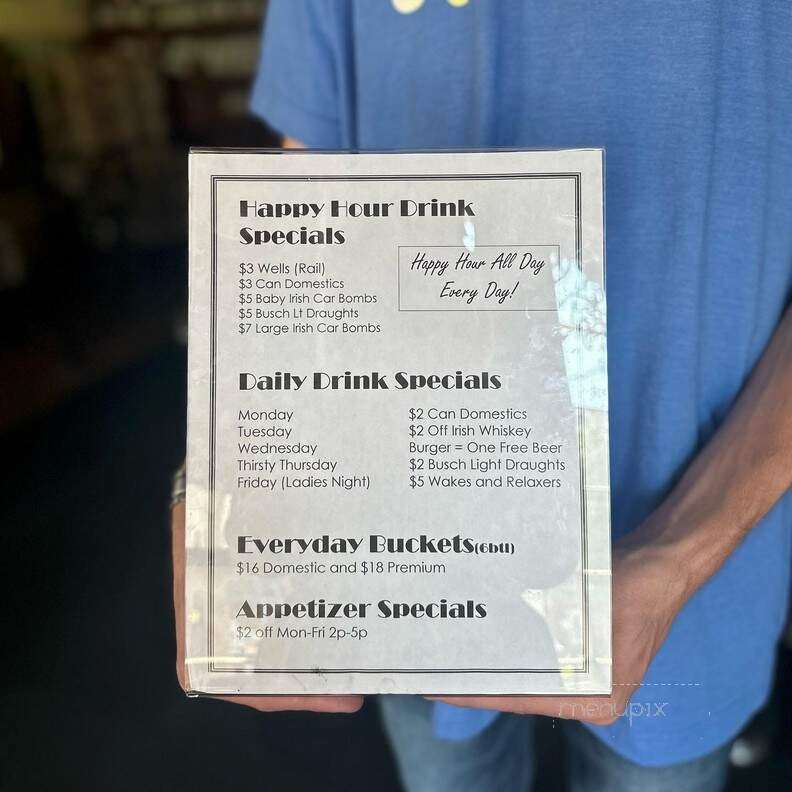 Happy Hour Drink
Specials
$3 Wells (Rail)
$3 Can Domestics
$5 Baby Irish Car Bombs
$5 Busch Lt Draughts
$7 Large Irish Car Bombs
Happy Hour All Day
Every Day!
Daily Drink Specials
Monday $2 Can Domestics
Tuesday $2 Off Irish Whiskey
Wednesday Burger = One Free Beer
Thirsty Thursday $2 Busch Light Draughts
Friday (Ladies Night) $5 Wakes and Relaxers
Everyday Buckets(6btl)
$16 Domestic and $18 Premium
Appetizer Specials
$2 off Mon-Fri 2p-5p
menupix